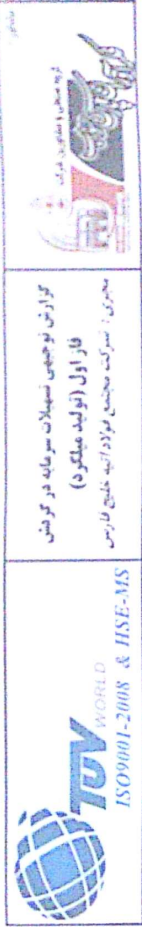 گروه صنعتی و مشاورین
گزارش توجیهی تسهیلات سرمایه در گردش
فاز اول (تولید میلگرد)
مجری : شرکت مجتمع فولاد آتیه خلیج فارس
TUV WORLD
ISO9001-2008 & HSE-MS